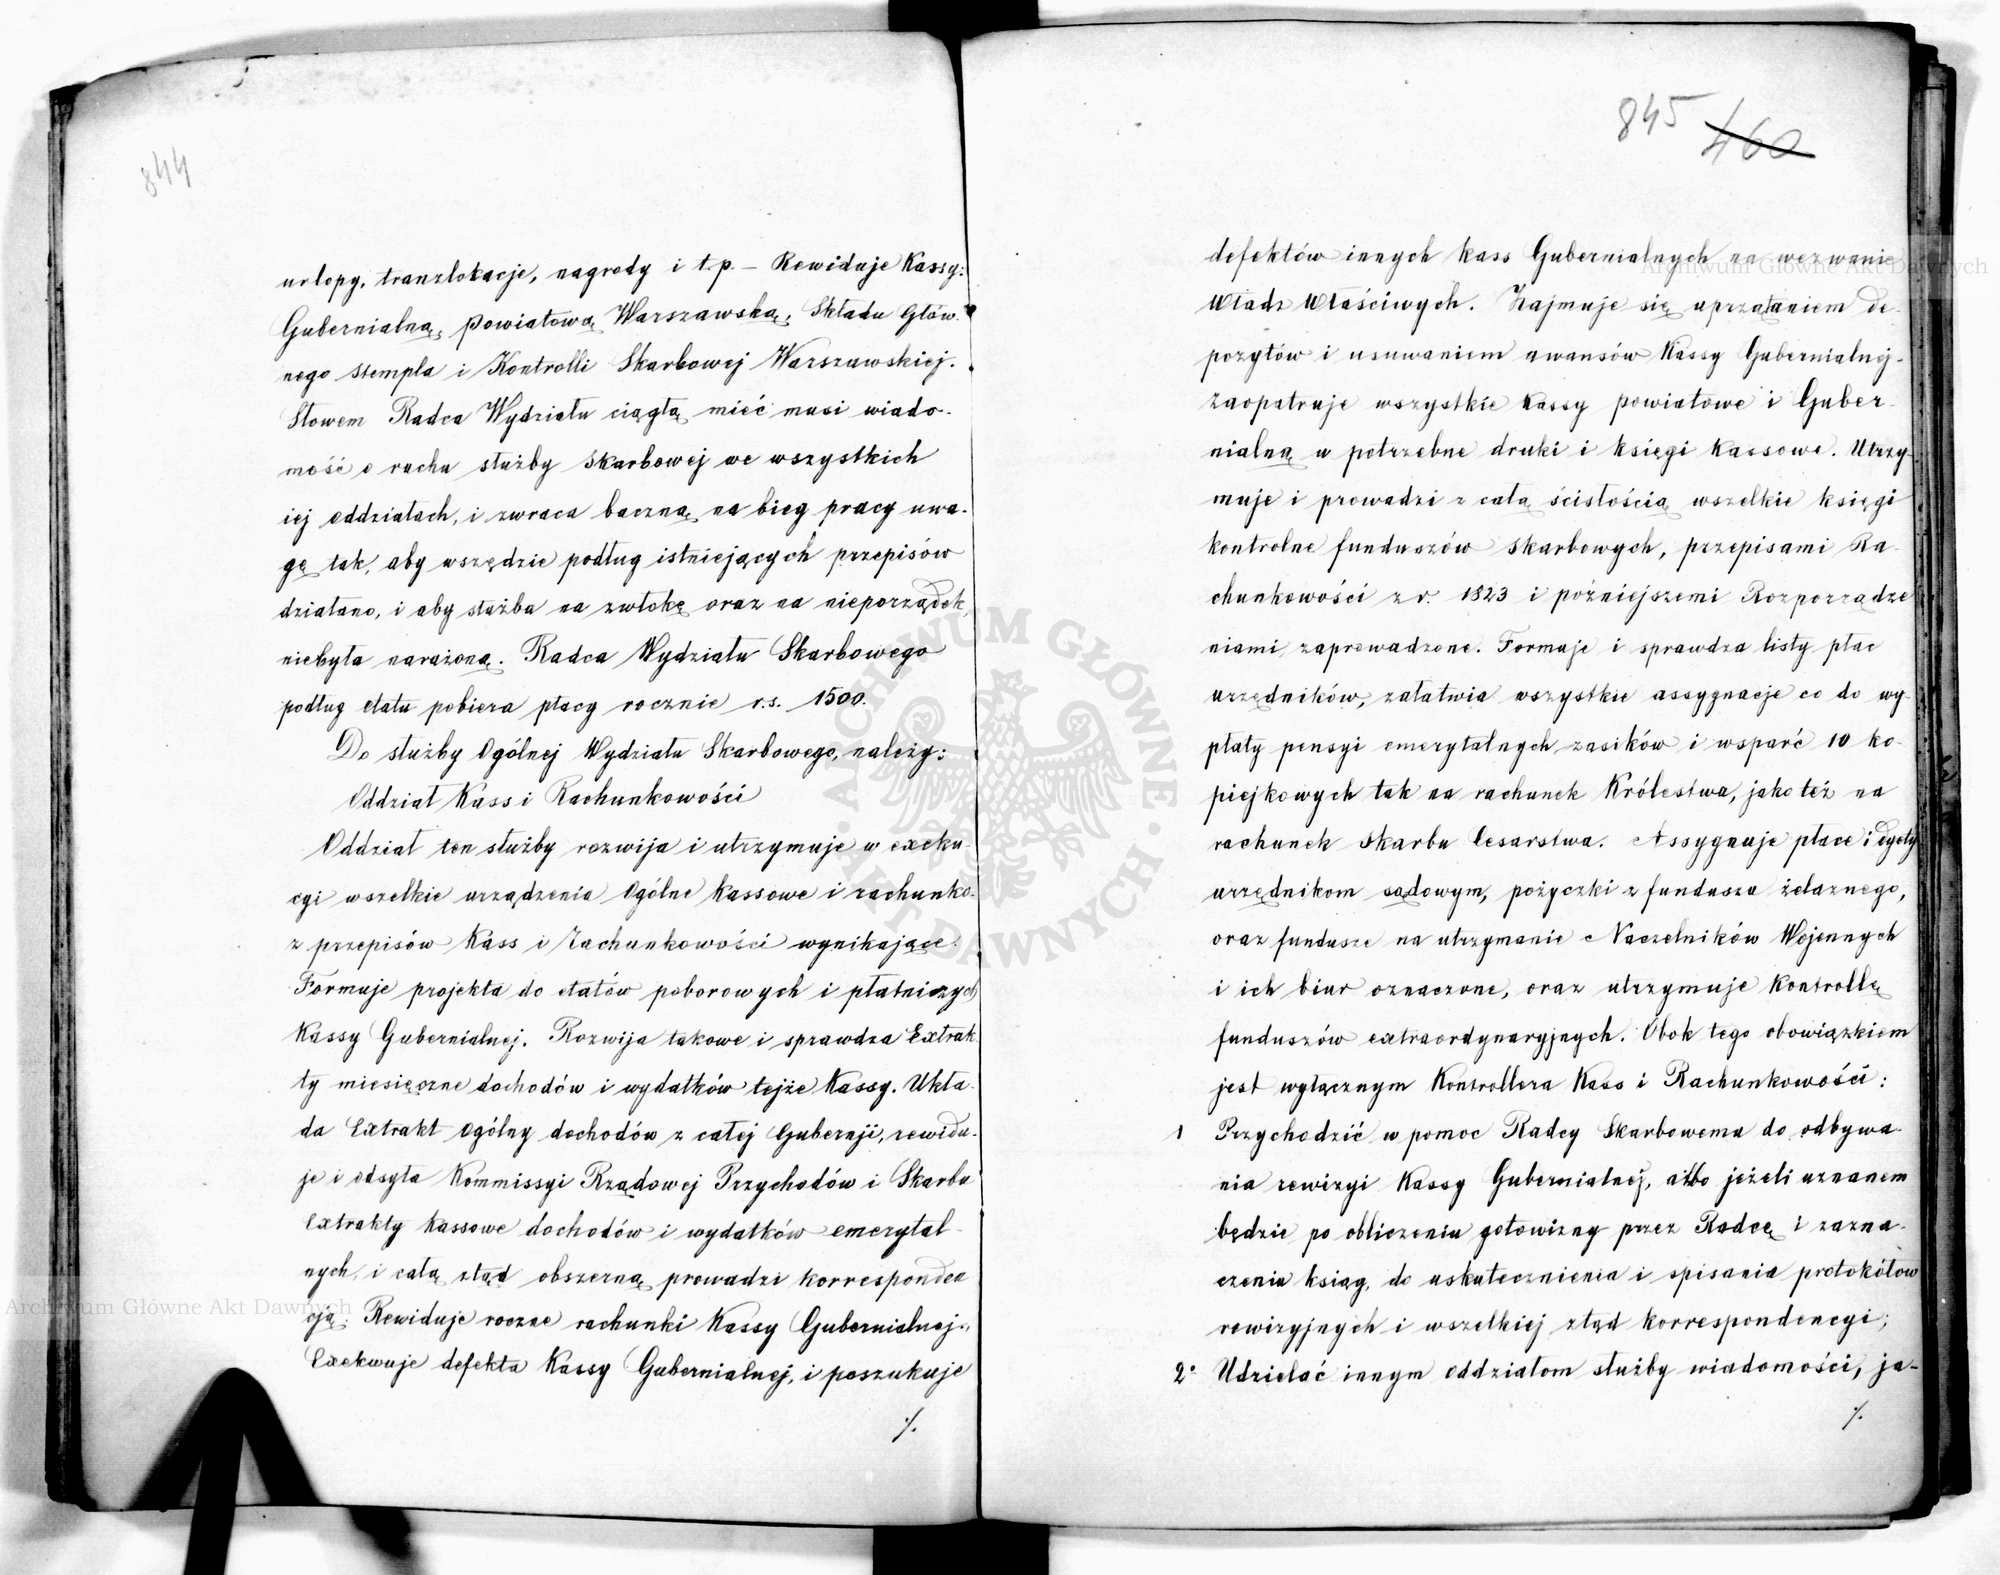 844
urlopy, tranzlokacje, nagrody i t.p. — Rewiduje Kassy:
Gubernialną, powiatową Warszawską, Składu Głów-
nego stempla i Kontrolli Skarbowej Warszawskiej.
Słowem Radca Wydziału ciągłą mieć musi wiado-
mość o ruchu służby skarbowej we wszystkich
iej oddziałach, i zwraca baczną na bieg pracy uwa-
gę tak, aby wszędzie podług istniejących przepisów
działano, i aby służba na zwłokę oraz na nieporządek,
niebyła narażoną. Radca Wydziału Skarbowego
podług etatu pobiera płacy rocznie r.s. 1500.
Do służby Ogólnej Wydziału Skarbowego, należy:
Oddział Kass i Rachunkowości
Oddział ten służby rozwija i utrzymuje w exeku-
cyi wszelkie urządzenia Ogólne kassowe i rachunko-
z przepisów Kass i Rachunkowości wynikające.
Formuje projekta do etatów poborowych i płatniczych
Kassy Gubernialnej. Rozwija takowe i sprawdza Extrak
ty miesięczne dochodów i wydatków tejże Kassy. Ukła-
da Extrakt ogólny dochodów z całej Gubernji, rewidu-
je i odsyła Kommissyi Rządowej Przychodów i Skarbu
Extrakty kassowe dochodów i wydatków emerytal-
nych, i całą ztąd obszerną prowadzi korresponden
cją. Rewiduje roczne rachunki Kassy Gubernialnej.
Exekwuje defekta Kassy Gubernialnej, i poszukuje
./.
845 460
defektów innych kass Gubernialnych na wezwanie
Władz Właściwych. Zajmuje się uprzątaniem de-
pozytów i usuwaniem awansów Kassy Gubernialnej.
zaopatruje wszystkie kassy powiatowe i Guber-
nialną w potrzebne druki i księgi kassowe. Utrzy-
muje i prowadzi z całą ścisłością wszelkie księgi
kontrolne funduszów skarbowych, przepisami Ra-
chunkowości z r. 1823 i późniejszemi Rozporządze
niami zaprowadzone. Formuje i sprawdza listy płac
urzędników, załatwia wszystkie assygnacje co do wy-
płaty pensyi emerytalnych, zasików i wsparć 10 ko-
piejkowych tak na rachunek Królestwa, jako też na
rachunek skarbu Cesarstwa. Assygnuje płace i dyety
urzędnikom sądowym, pożyczki z funduszu żelaznego,
oraz fundusze na utrzymanie Naczelników Wojennych
i ich biur oznaczone, oraz utrzymuje kontrollę
funduszów extraordynaryjnych. Obok tego obowiązkiem
jest wyłącznym Kontrollera Kass i Rachunkowości:
1 Przychodzić w pomoc Radcy Skarbowemu do odbywa-
nia rewizyi Kassy Gubernialnej, albo jeżeli uznanem
będzie po obliczeniu gotowizny przez Radcę i zazna-
czeniu ksiąg, do uskutecznienia i spisania protokółów
rewizyjnych i wszelkiej ztąd korrespondencyi;
2° Udzielać innym oddziałom służby wiadomości, ja-
./.
Archiwum Główne Akt Dawnych
Archiwum Główne Akt Dawnych
ARCHIWUM GŁÓWNE AKT DAWNYCH